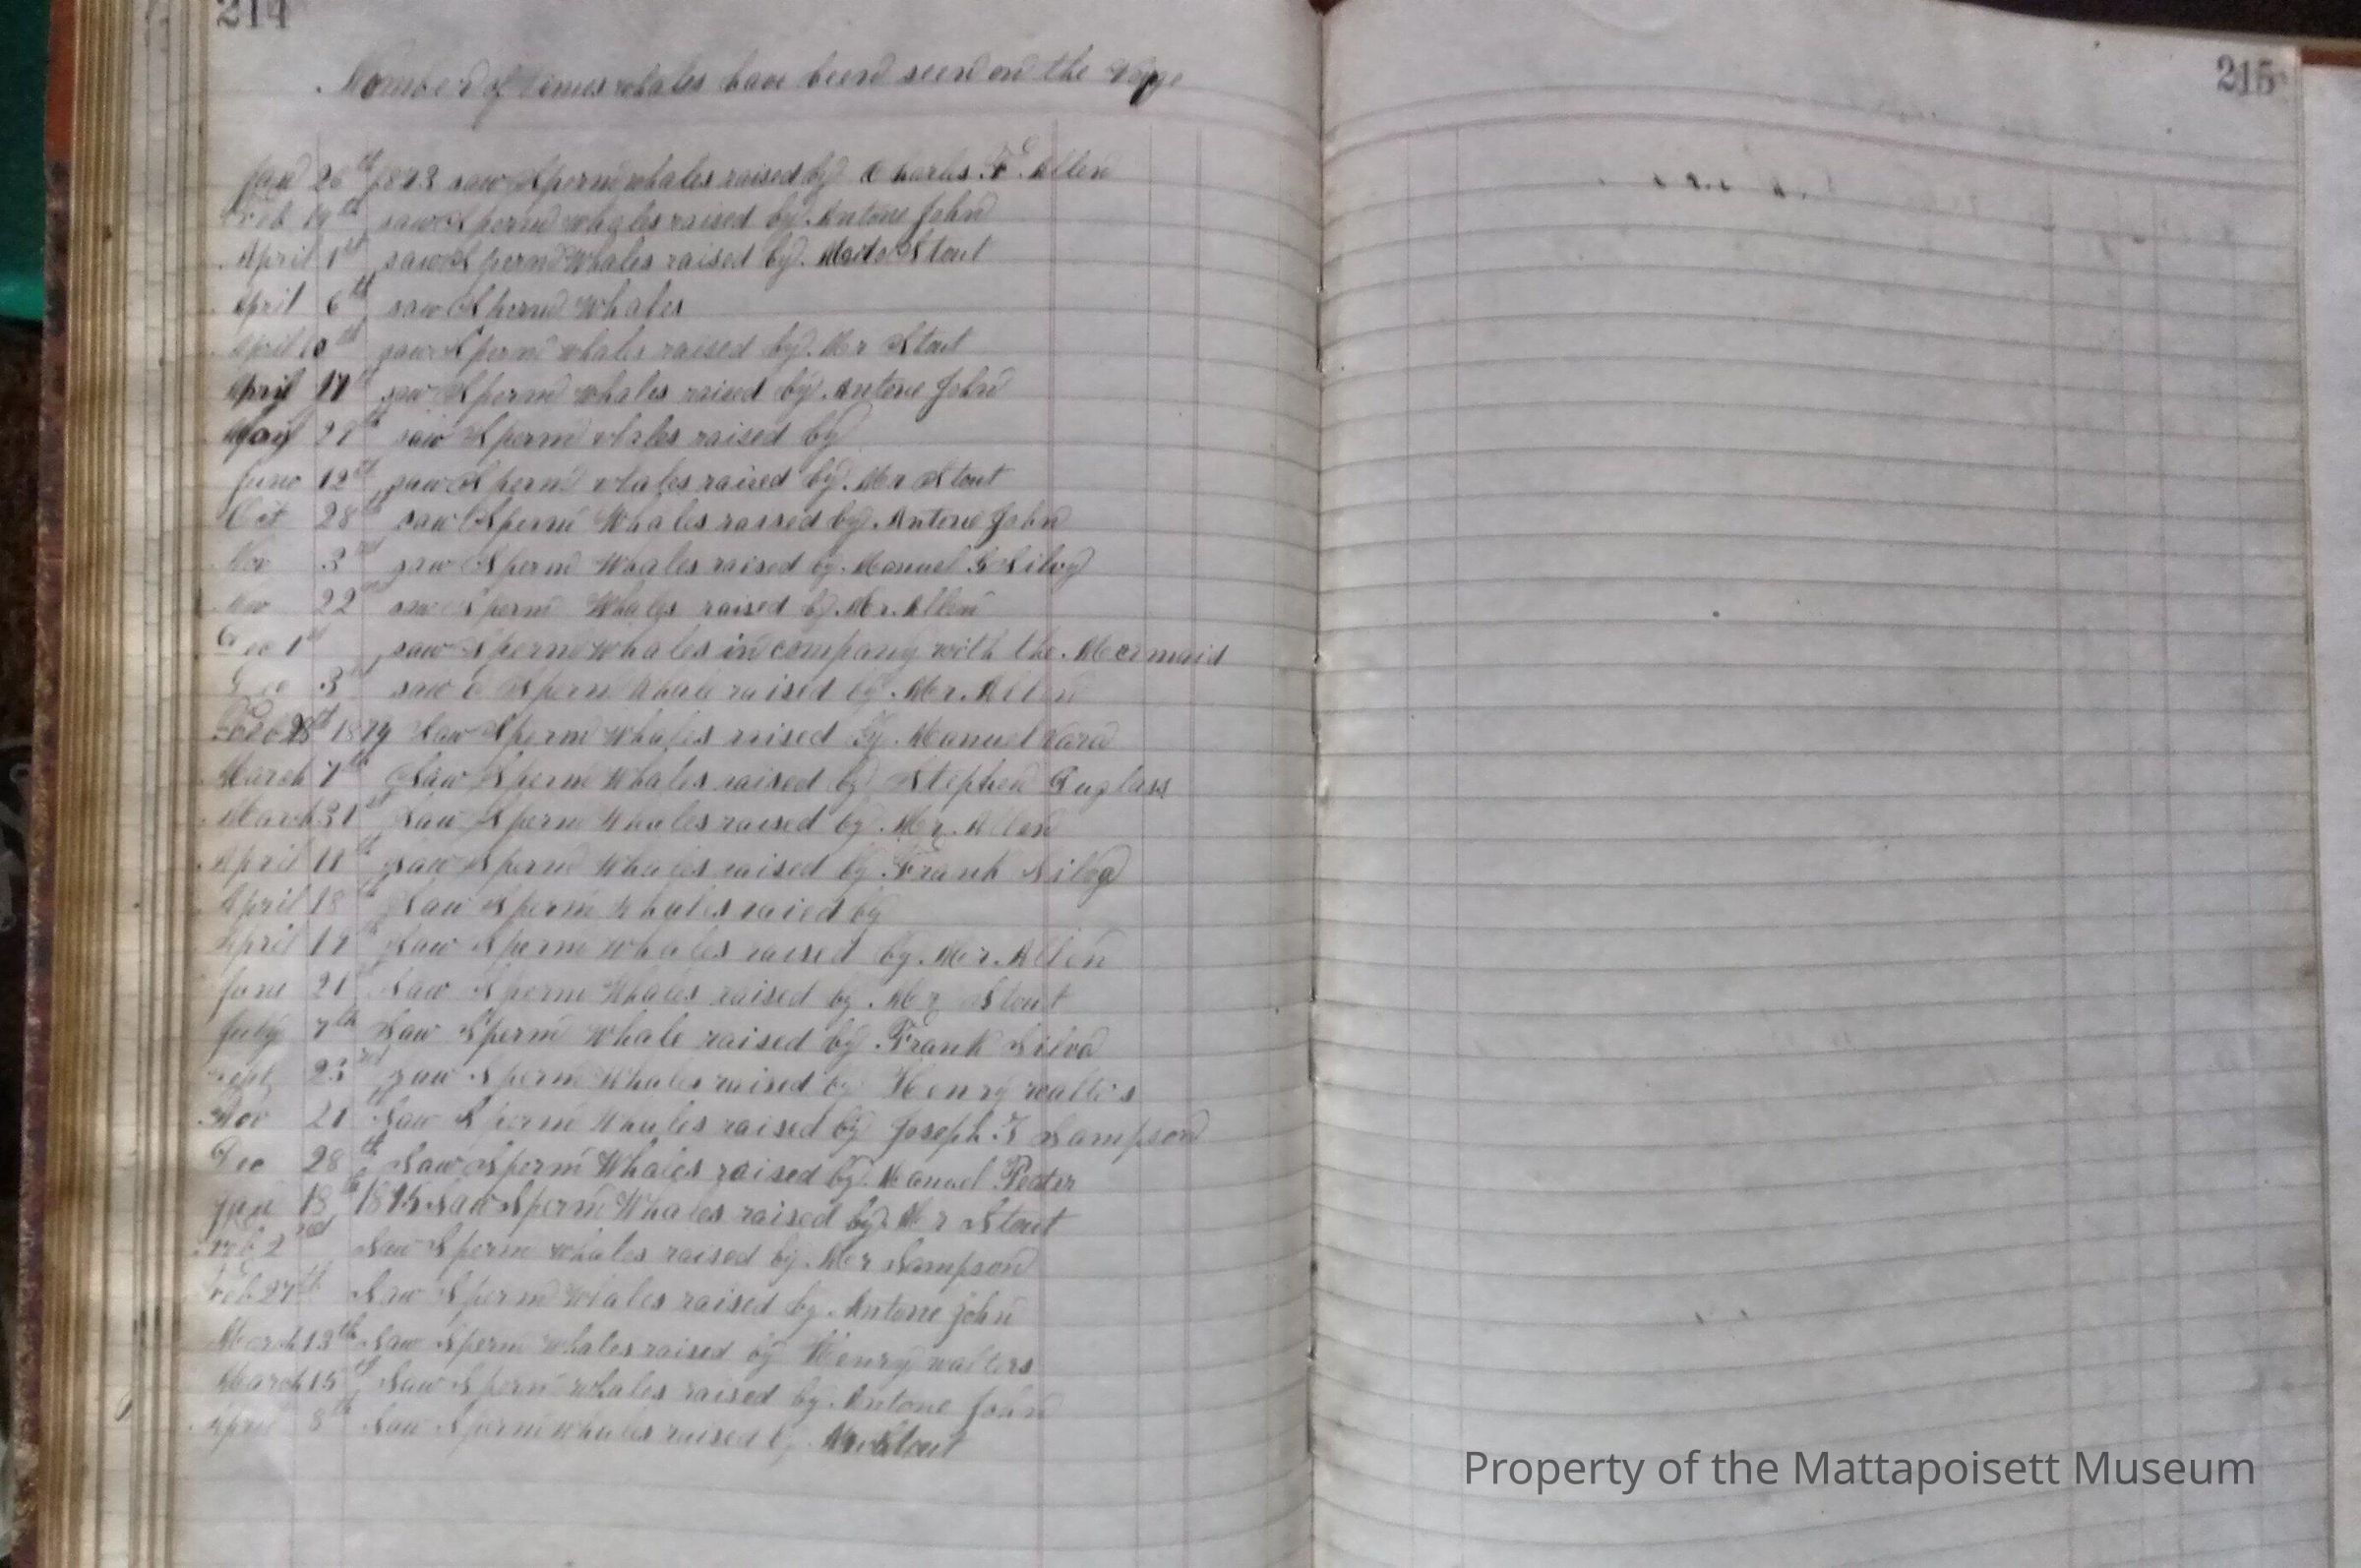 214
215
Nomber of times whales have been seen on the Voyge
Jan 26th 1873 saw Sperm whales raised by Charles F. Allen
Feb 19th saw Sperm whales raised by Antone John
April 1st saw Sperm Whales raised by Stout
April 6th saw Sperm Whales
April 10th saw Sperm whales raised by Mr Stout
April 17th saw Sperm whales raised by Antone John
May 27th saw Sperm whales raised by
June 12th saw Sperm whales raised by Mr Stout
Oct 28th saw Sperm Whales raised by Antone John
Nov 3rd saw Sperm Whales raised by Manuel Silvy
Nov 22 saw Sperm Whales raised by Mr. Allen
Dec 1st saw Sperm whales in company with the Mermaid
Dec 3rd saw Sperm Whale raised by Mr. Allen
Feb 1874 Saw Sperm Whales raised By Manuel
March 7th Saw Sperm Whales raised by Stephen Duglass
March 31st Saw Sperm Whales raised by Mr. Allen
April 11th Saw Sperm Whales raised by Frank Silva
April 18th Saw Sperm Whales raied by
April 19th Saw Sperm whales raised by Mr. Allen
June 21st Saw Sperm Whales raised by Mr Stout
July 7th Saw Sperm Whale raised by Frank Silva
Sept 23rd saw Sperm Whales raised by Henry
Nov 21st Saw Sperm Whales raised by Joseph. T Sampson
Dec 28th Saw Sperm Whales raised by Manuel Peater
Jan 18th 1875 Saw Sperm Whales raised by Mr Stout
Feb 2nd Saw Sperm whales raised by Mr Sampson
Feb 27th Saw Sperm whales raised by Antone John
March 13th Saw Sperm Whales raised by Henry walters
March 15th Saw Sperm whales raised by Antone John
April 8th Saw Sperm whales raised by Mr Stout
Property of the Mattapoisett Museum